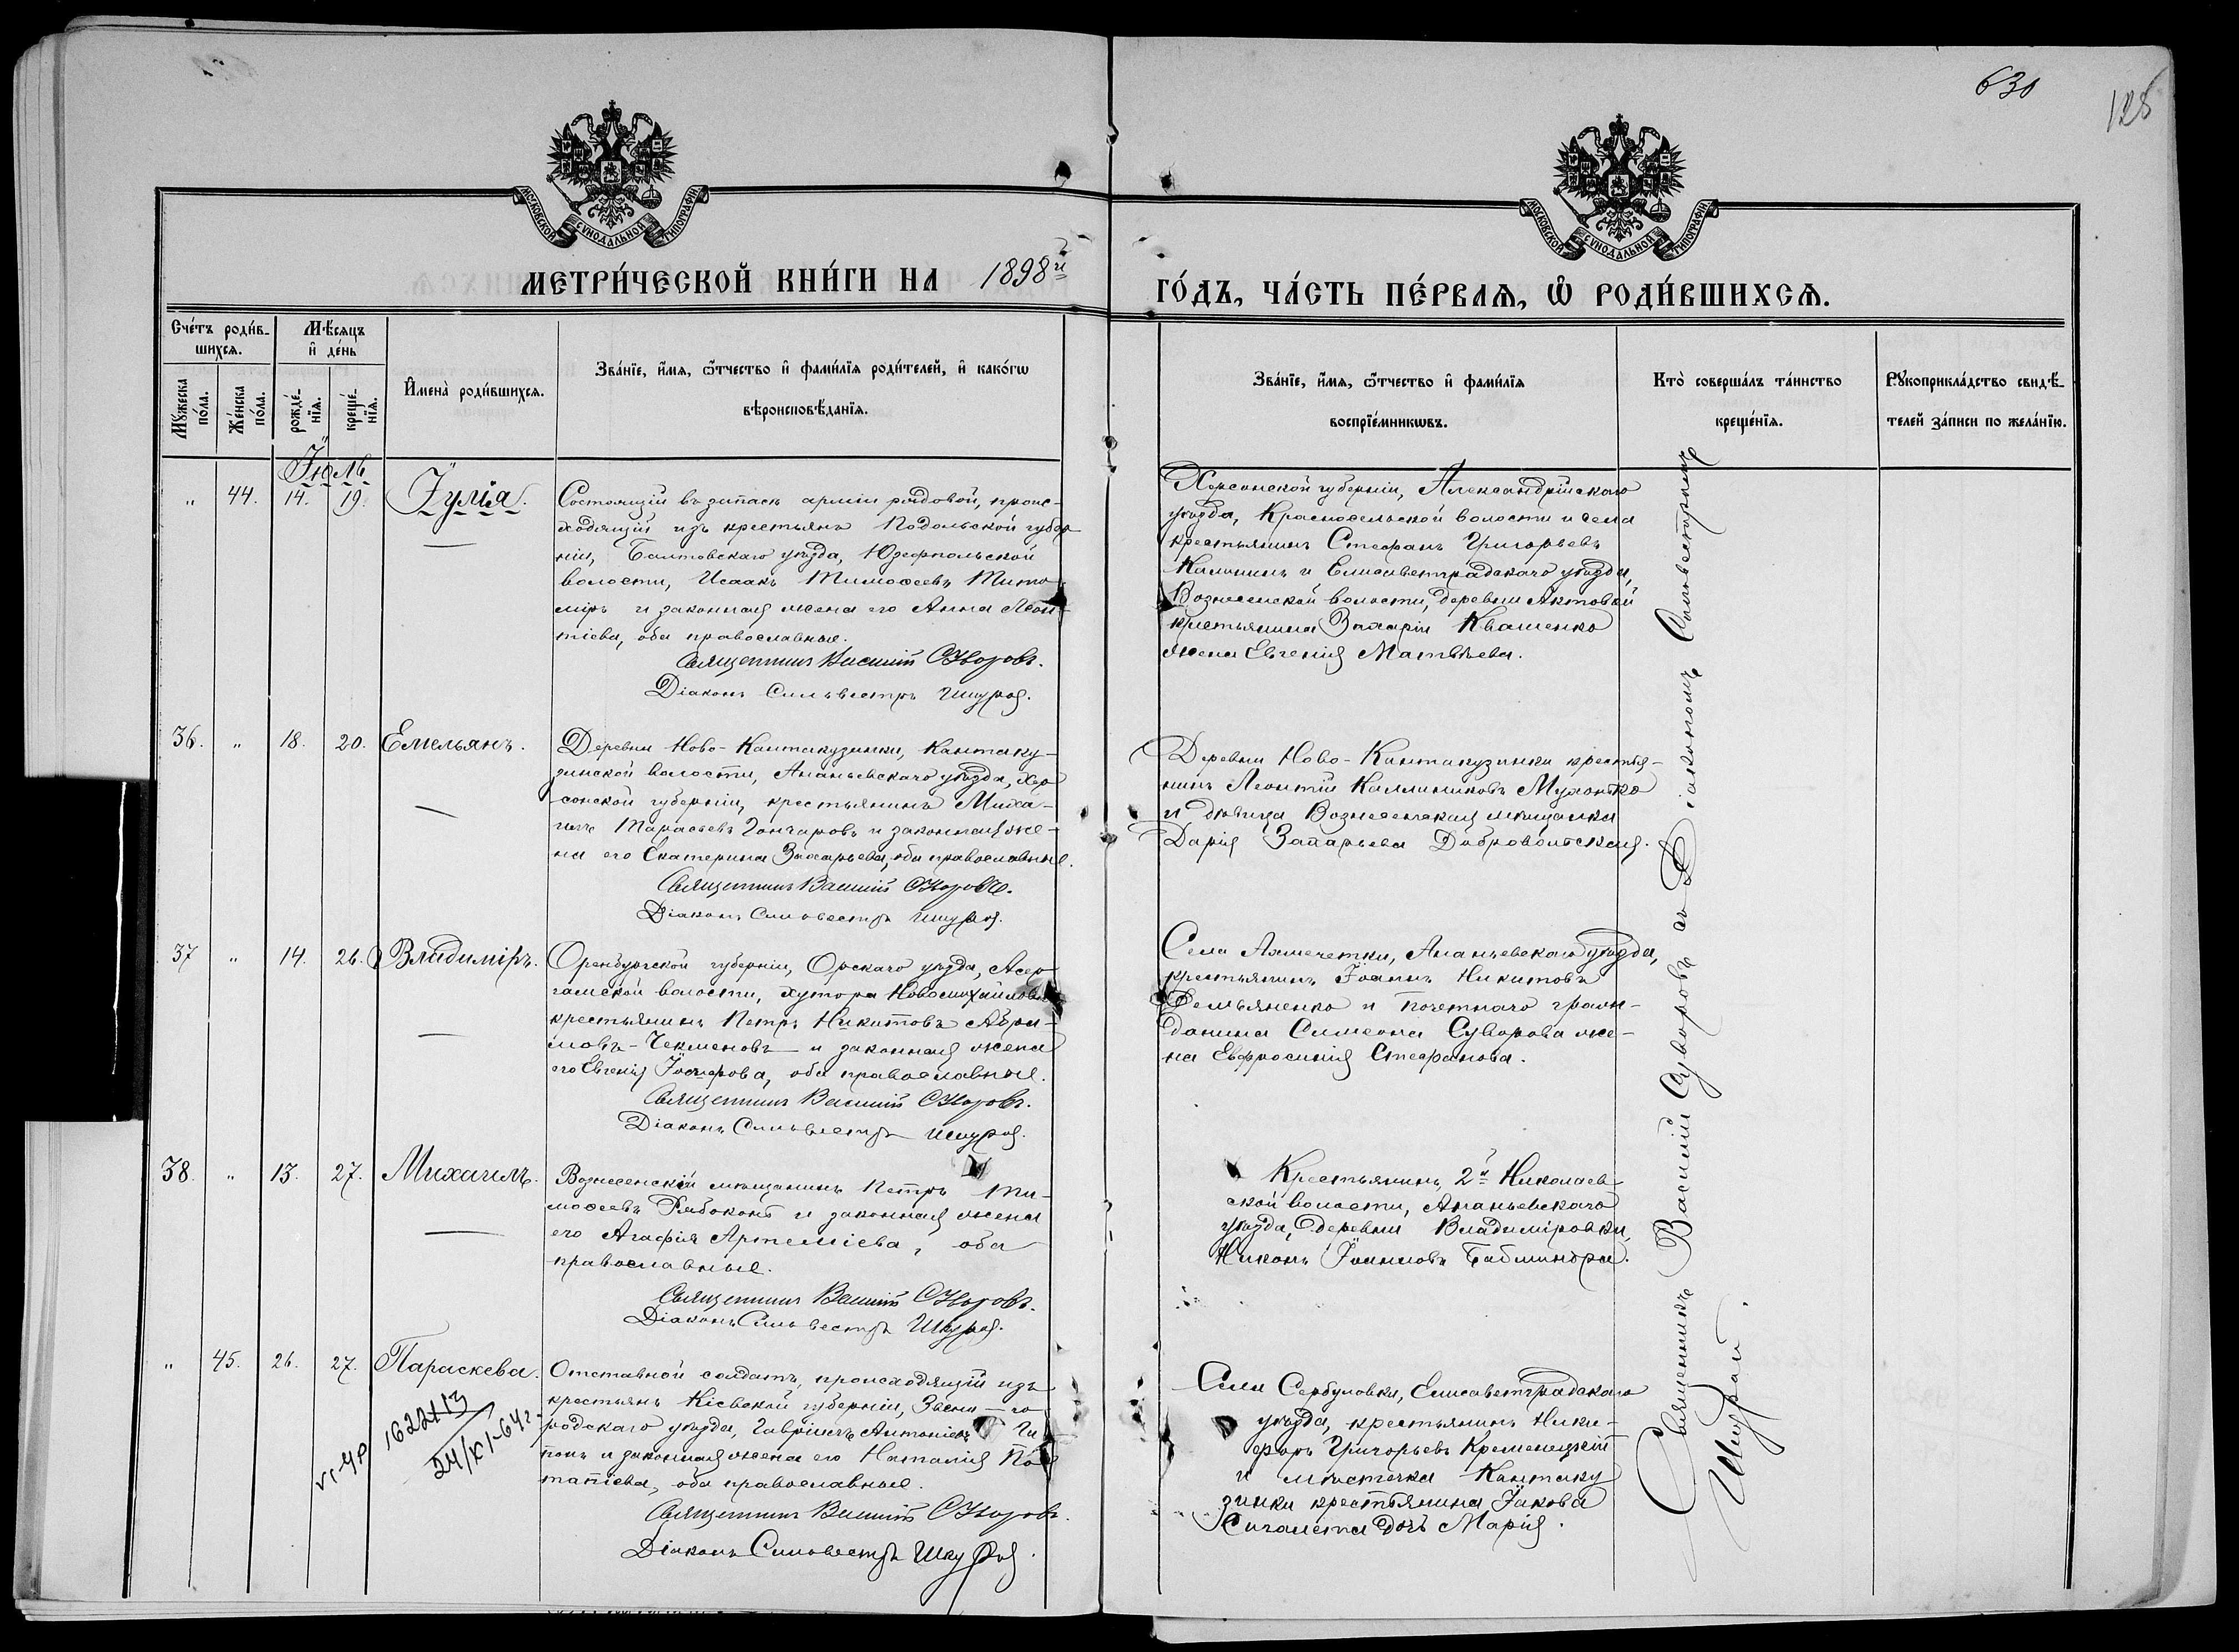 630
128
МОСКОВСКОЙ СУНОДАЛЬНОЙ ТИПОГРАФІИ
МОСКОВСКОЙ СУНОДАЛЬНОЙ ТИПОГРАФІИ
МЕТРИ́ЧЕСКОЙ КНИ́ГИ НА 1898й
ГО́ДЪ, ЧА́СТЬ ПЕ́РВАѦ, Ѡ РОДИ́ВШИХСѦ.
Сче́тъ роди́в-
шихсѧ.
Мꙋ́жеска по́ла.
Же́нска по́ла.
Мѣ́сѧцъ
и҆ де́нь
рожде́-
нїѧ.
креще́-
нїѧ.
И҆мена̀ роди́вшихсѧ.
Зва́нїе, и҆́мѧ, ѻ҆́тчество и҆ фами́лїѧ роди́телей, и҆ како́гѡ
вѣроисповѣ́данїѧ.
Зва́нїе, и҆́мѧ, ѻ҆́тчество и҆ фами́лїѧ
воспрїе́мникѡвъ.
Кто̀ соверша́лъ та́инство
креще́нїѧ.
Рꙋкоприкла́дство свидѣ́-
телей за́писи по жела́нїю.
Іюль
„ 44. 14. 19. Іулія.
Состоящій въ запасѣ арміи рядовой, проис-
ходящій изъ крестьянъ Подольской губер-
ніи, Балтовскаго уѣзда, Юзефпольской
волости, Исаакъ Тимоѳеевъ Тито-
міръ и законная жена его Анна Леон-
тіева, оба православные.
Священникъ Василій Суворовъ.
Діаконъ Сильвестръ Шкурой.
Херсонской губерніи, Александрійскаго
уѣзда, Красносельской волости и села
крестьянинъ Стефанъ Григорьевъ
Калининъ и Елисаветградскаго уѣзда,
Вознесенской волости, деревни Актовой
крестьянина Захаріи Квашенко
жена Евгенія Матвѣева.
36. „ 18. 20. Емельянъ.
Деревни Ново-Кантакузинки, Кантаку-
зинской волости, Ананьевскаго уѣзда, Хер-
сонской губерніи, крестьянинъ Миха-
илъ Тарасьевъ Гончаровъ и законная же-
на его Екатерина Захарьева, оба православные.
Священникъ Василій Суворовъ.
Діаконъ Сильвестръ Шкурой.
Деревни Ново-Кантакузинки крестья-
нинъ Леонтій Каллиниковъ Мухонько
и дѣвица Вознесенская мѣщанка
Дарія Захарьева Добровольская.
37 „ 14. 26. Владиміръ.
Оренбургской губерніи, Орскаго уѣзда,
волости, хутора Новомихайловка
крестьянинъ Петръ Никитовъ Абра-
мовъ-Чекменовъ и законная жена
его Евгенія Іосифова, оба православные.
Священникъ Василій Суворовъ.
Діаконъ Сильвестръ Шкурой.
Села Ахмечетки, Ананьевскаго уѣзда,
крестьянинъ Іоаннъ Никитовъ
Демьяненко и почетнаго граж-
данина Симеона Суворова же-
на Евфросинія Стефанова.
38. „ 13. 27. Михаилъ.
Вознесенскій мѣщанинъ Петръ Ти-
моѳеевъ Рябоконь и законная жена
его Агафія Артеміева, оба
православные.
Священникъ Василій Суворовъ.
Діаконъ Сильвестръ Шкурой.
Крестьянинъ, 2й Николаев-
ской волости, Ананьевскаго
уѣзда, деревни Владиміровки,
Никонъ Іоанновъ Бабминдра.
„ 45. 26. 27. Параскева.
Отставной солдатъ, происходящій изъ
крестьянъ Кіевской губерніи, Звени-го-
родскаго уѣзда, Гавріилъ Антоніевъ
и законная жена его Наталія По-
тапіева, оба православные.
Священникъ Василій Суворовъ.
Діаконъ Сильвестръ Шкурой.
Села Сербуловки, Елисаветградскаго
уѣзда, крестьянинъ Ники-
форъ Григорьевъ Кременецкій
и мѣстечка Кантаку-
зинки крестьянина Іакова
дочь Марія.
1622413
24/XI-64г.
Священникъ Василій Суворовъ съ Діакономъ Сильвестромъ
Шкурой.